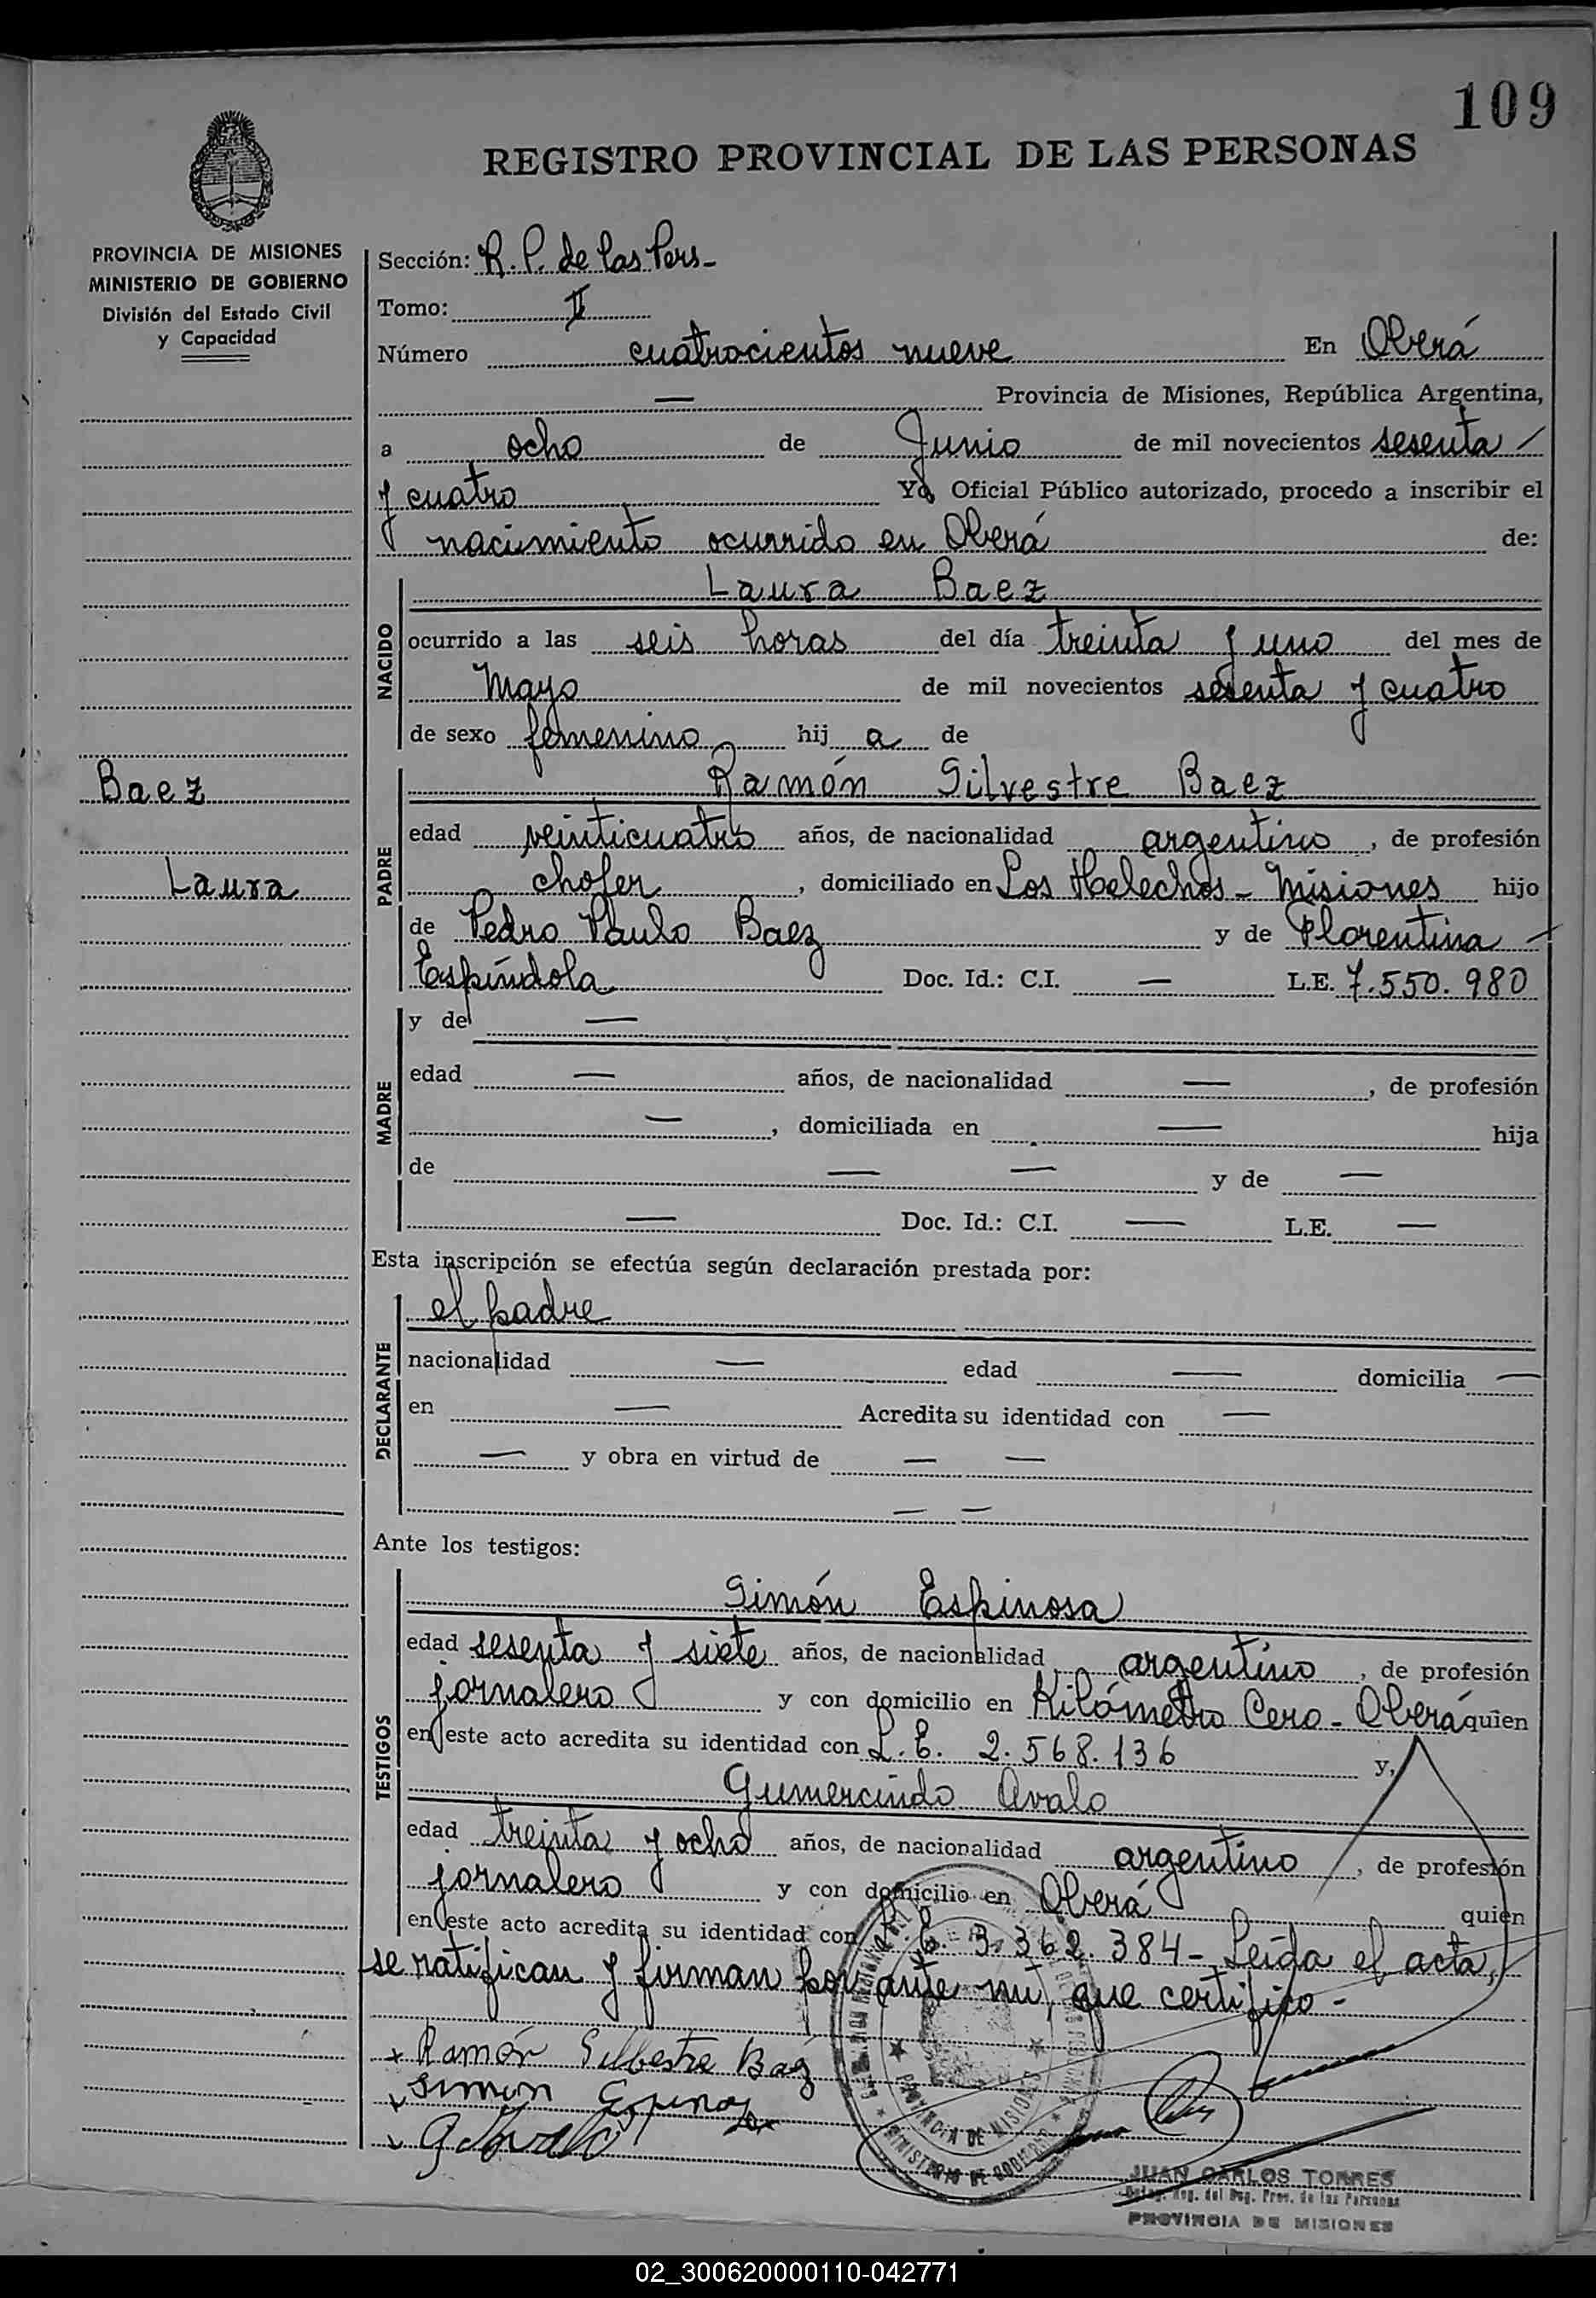 109
REGISTRO PROVINCIAL DE LAS PERSONAS
PROVINCIA DE MISIONES
MINISTERIO DE GOBIERNO
División del Estado Civil
y Capacidad
Sección: R. P. de las Pers-
Tomo: II
Número cuatrocientos nueve En Oberá
— Provincia de Misiones, República Argentina,
a ocho de Junio de mil novecientos sesenta
y cuatro Yo, Oficial Público autorizado, procedo a inscribir el
nacimiento ocurrido en Oberá de:
NACIDO
Laura Baez
ocurrido a las seis horas del día treinta y uno del mes de
Mayo de mil novecientos sesenta y cuatro
de sexo femenino hij a de
Baez
Laura
PADRE
Ramón Silvestre Baez
edad veinticuatro años, de nacionalidad argentino, de profesión
chofer, domiciliado en Los Helechos - Misiones hijo
de Pedro Paulo Baez y de Florentina -
Espíndola Doc. Id.: C.I. — L.E. 7.550.980
MADRE
y de —
edad — años, de nacionalidad —, de profesión
—, domiciliada en — hija
de — — y de —
— Doc. Id.: C.I. — L.E. —
Esta inscripción se efectúa según declaración prestada por:
DECLARANTE
el padre
nacionalidad — edad — domicilia —
en — Acredita su identidad con —
— y obra en virtud de — —
— —
Ante los testigos:
TESTIGOS
Simón Espinosa
edad sesenta y siete años, de nacionalidad argentino, de profesión
jornalero y con domicilio en Kilómetro Cero - Oberá quien
en este acto acredita su identidad con L.E. 2.568.136 y,
Gumercindo Avalo
edad treinta y ocho años, de nacionalidad argentino, de profesión
jornalero y con domicilio en Oberá quien
en este acto acredita su identidad con L.E. 3.362.384- Leída el acta,
se ratifican y firman por ante mí, que certifico -
x Ramón Silbestre Baez
x Simon Espinosa
x G Avalo
PROVINCIA DE MISIONES
MINISTERIO DE GOBIERNO
JUAN CARLOS TORRES
Deleg. Reg. del Reg. Prov. de las Personas
PROVINCIA DE MISIONES
02_300620000110-042771